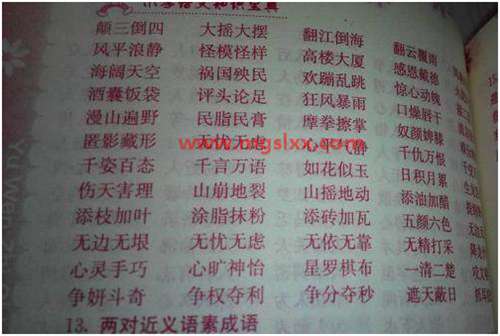 小学语文知识宝典
颠三倒四 大摇大摆 翻江倒海 翻云覆雨
风平浪静 怪模怪样 高楼大厦 感恩戴德
海阔天空 祸国殃民 欢蹦乱跳 惊心动魄
酒囊饭袋 评头论足 狂风暴雨 口燥唇干
漫山遍野 民脂民膏 摩拳擦掌 奴颜婢膝
匿影藏形 无忧无虑 心平气静 千仇万恨
千姿百态 千言万语 如花似玉 日积月累
伤天害理 山崩地裂 山摇地动 添油加醋
添枝加叶 涂脂抹粉 添砖加瓦 五颜六色
无边无垠 无忧无虑 无依无靠 无精打采
心灵手巧 心旷神怡 星罗棋布 一清二楚
争妍斗奇 争权夺利 争分夺秒 遮天蔽日
13. 两对近义语素成语
www.mgslxx.com